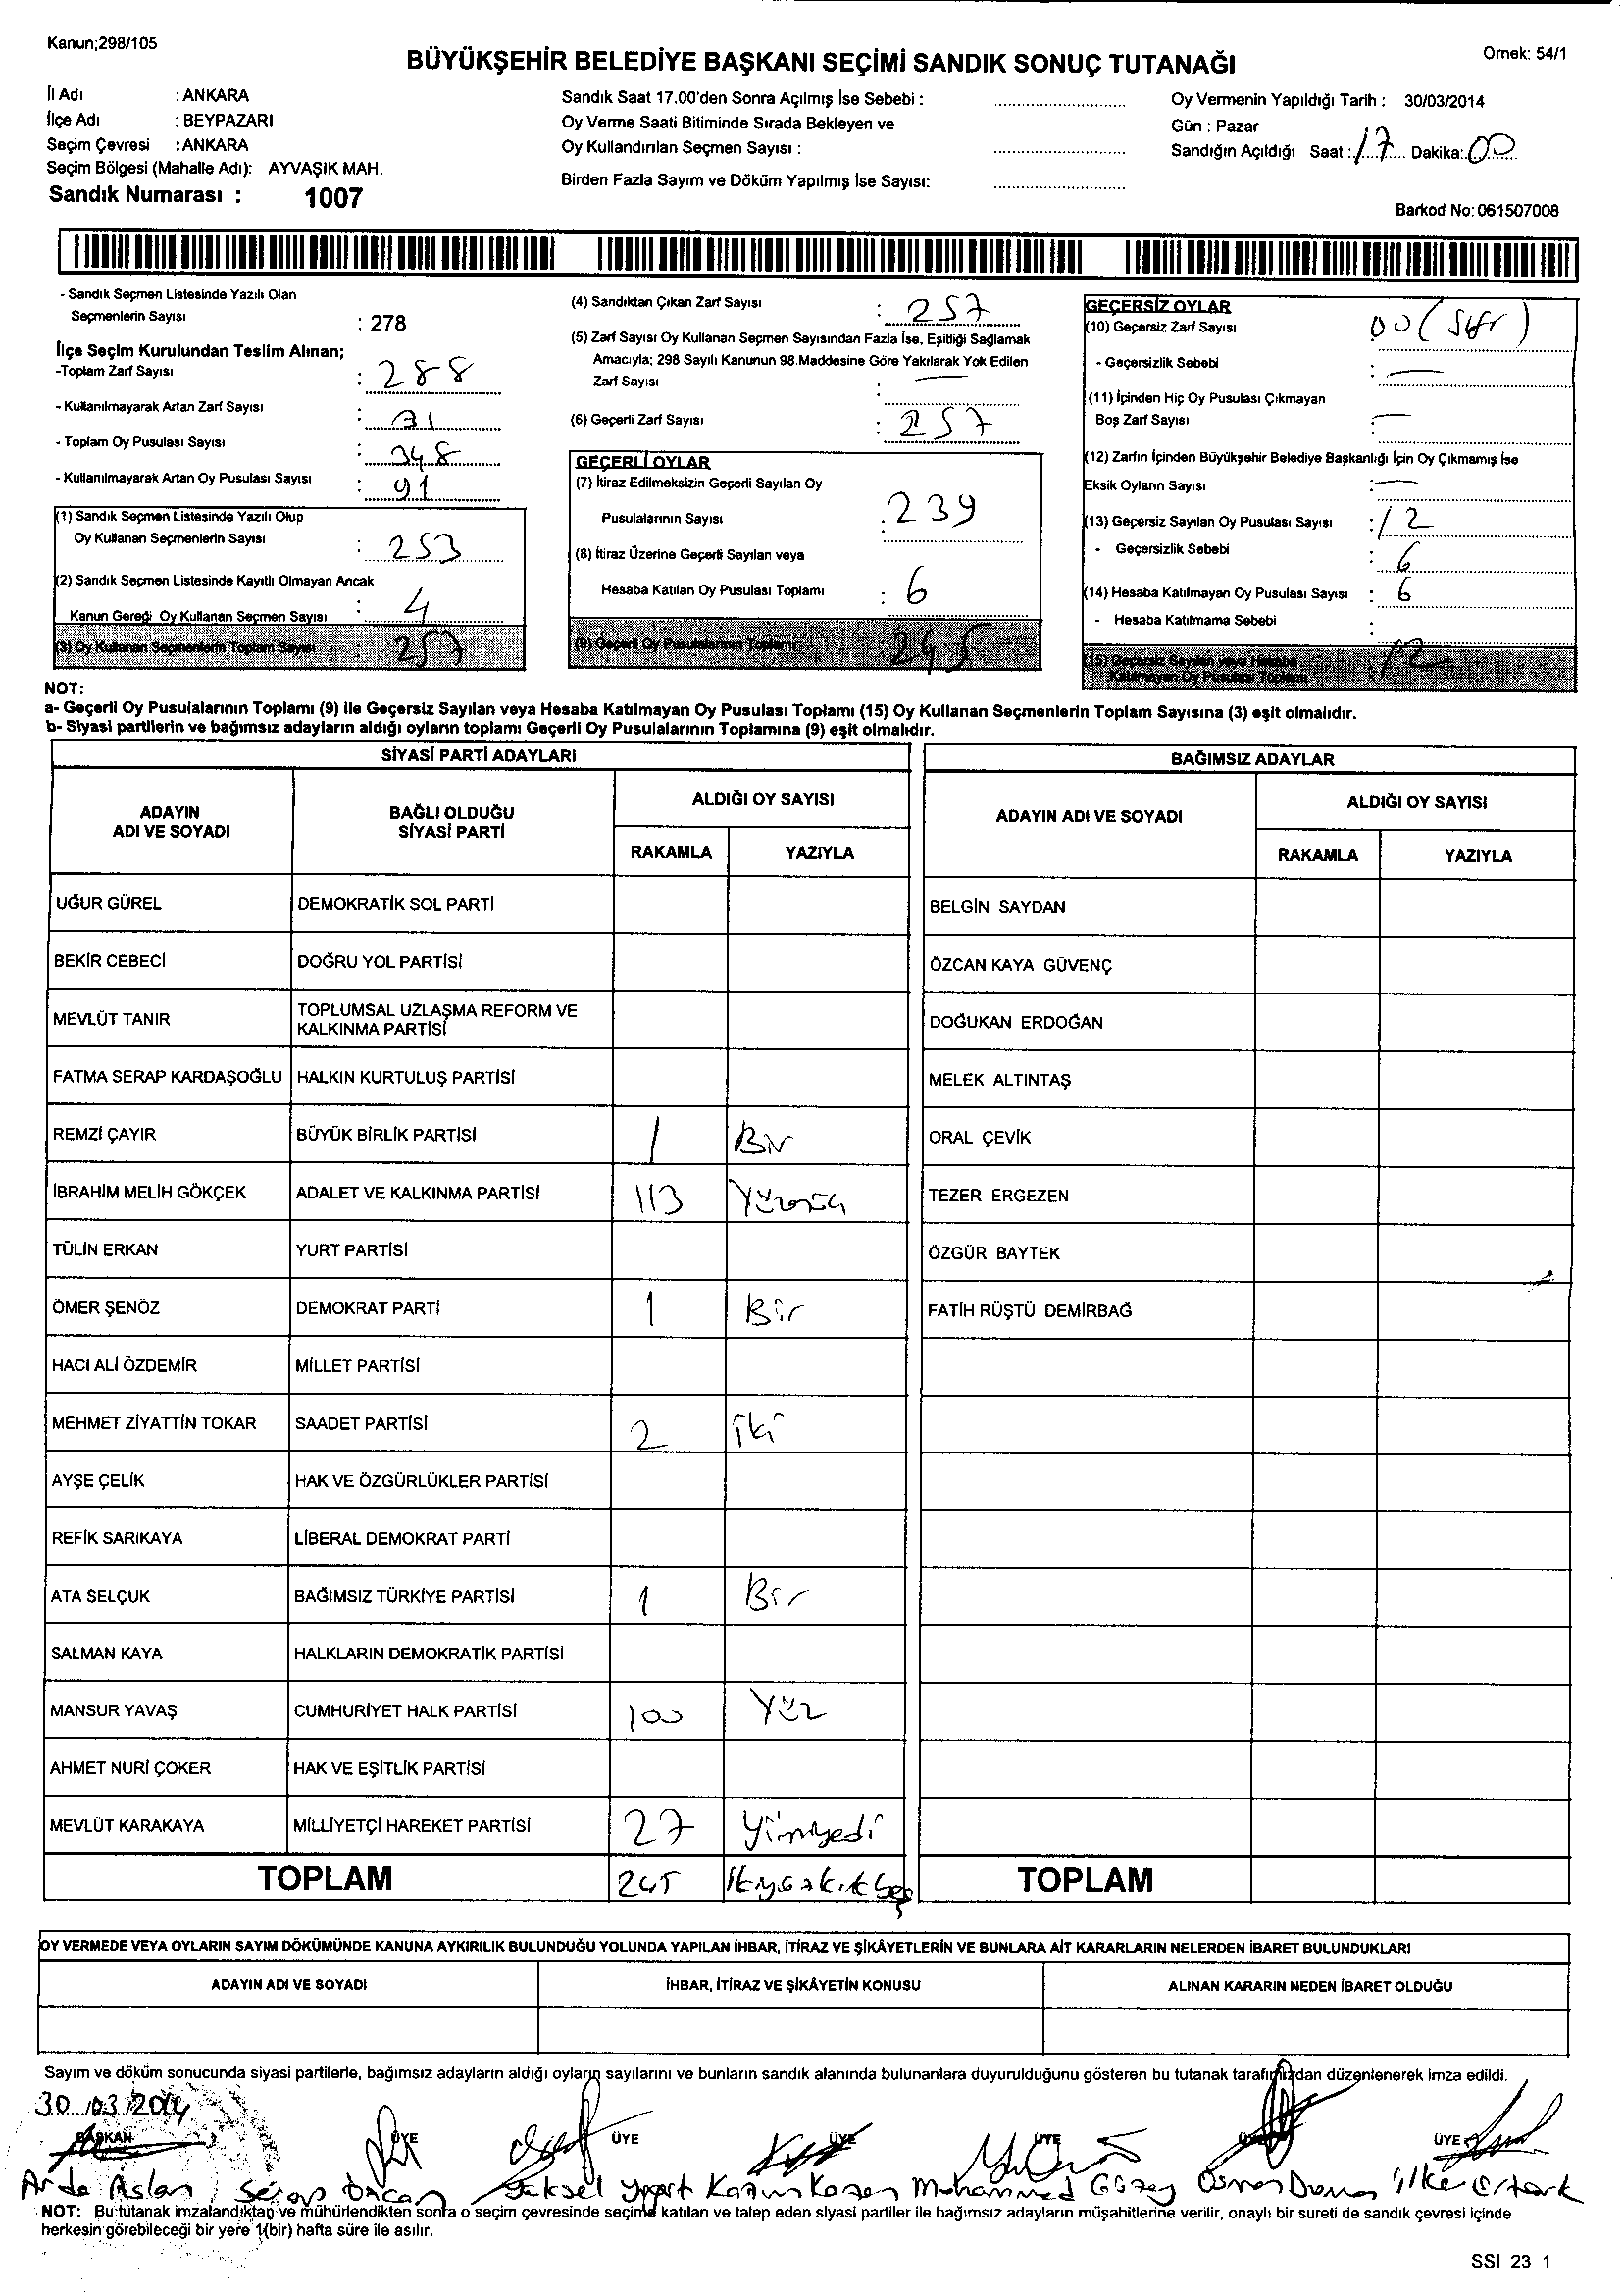 Kanun;298/105
BÜYÜKŞEHİR BELEDİYE BAŞKANI SEÇİMİ SANDIK SONUÇ TUTANAĞI
Ornek: 54/1
İl Adı : ANKARA
İlçe Adı : BEYPAZARI
Seçim Çevresi : ANKARA
Seçim Bölgesi (Mahalle Adı): AYVAŞIK MAH.
Sandık Numarası : 1007
Sandık Saat 17.00'den Sonra Açılmış İse Sebebi :
Oy Verme Saati Bitiminde Sırada Bekleyen ve
Oy Kullandırılan Seçmen Sayısı :
Birden Fazla Sayım ve Döküm Yapılmış İse Sayısı:
Oy Vermenin Yapıldığı Tarih : 30/03/2014
Gün : Pazar
Sandığın Açıldığı Saat : 17 Dakika: 00
Barkod No: 061507008
- Sandık Seçmen Listesinde Yazılı Olan
Seçmenlerin Sayısı : 278
İlçe Seçim Kurulundan Teslim Alınan;
-Toplam Zarf Sayısı : 288
- Kullanılmayarak Artan Zarf Sayısı : 31
- Toplam Oy Pusulası Sayısı : 348
- Kullanılmayarak Artan Oy Pusulası Sayısı : 91
(1) Sandık Seçmen Listesinde Yazılı Olup
Oy Kullanan Seçmenlerin Sayısı : 253
(2) Sandık Seçmen Listesinde Kayıtlı Olmayan Ancak
Kanun Gereği Oy Kullanan Seçmen Sayısı : 4
(3) Oy Kullanan Seçmenlerin Toplam Sayısı 257
(4) Sandıktan Çıkan Zarf Sayısı : 257
(5) Zarf Sayısı Oy Kullanan Seçmen Sayısından Fazla İse, Eşitliği Sağlamak
Amacıyla; 298 Sayılı Kanunun 98.Maddesine Göre Yakılarak Yok Edilen
Zarf Sayısı : —
(6) Geçerli Zarf Sayısı : 257
GEÇERLİ OYLAR
(7) İtiraz Edilmeksizin Geçerli Sayılan Oy
Pusulalarının Sayısı : 239
(8) İtiraz Üzerine Geçerli Sayılan veya
Hesaba Katılan Oy Pusulası Toplamı : 6
(9) Geçerli Oy Pusulalarının Toplamı 245
GEÇERSİZ OYLAR
(10) Geçersiz Zarf Sayısı : 00 (Sıfır)
- Geçersizlik Sebebi : —
(11) İçinden Hiç Oy Pusulası Çıkmayan
Boş Zarf Sayısı : —
(12) Zarfın İçinden Büyükşehir Belediye Başkanlığı İçin Oy Çıkmamış İse
Eksik Oyların Sayısı : —
(13) Geçersiz Sayılan Oy Pusulası Sayısı : 12
- Geçersizlik Sebebi : 6
(14) Hesaba Katılmayan Oy Pusulası Sayısı : 6
- Hesaba Katılmama Sebebi :
(15) Geçersiz Sayılan veya Hesaba
Katılmayan Oy Pusulası Toplamı : 12
NOT:
a- Geçerli Oy Pusulalarının Toplamı (9) ile Geçersiz Sayılan veya Hesaba Katılmayan Oy Pusulası Toplamı (15) Oy Kullanan Seçmenlerin Toplam Sayısına (3) eşit olmalıdır.
b- Siyasi partilerin ve bağımsız adayların aldığı oyların toplamı Geçerli Oy Pusulalarının Toplamına (9) eşit olmalıdır.
SİYASİ PARTİ ADAYLARI
ADAYIN ADI VE SOYADI
BAĞLI OLDUĞU SİYASİ PARTİ
ALDIĞI OY SAYISI
RAKAMLA YAZIYLA
UĞUR GÜREL DEMOKRATİK SOL PARTİ
BEKİR CEBECİ DOĞRU YOL PARTİSİ
MEVLÜT TANIR TOPLUMSAL UZLAŞMA REFORM VE KALKINMA PARTİSİ
FATMA SERAP KARDAŞOĞLU HALKIN KURTULUŞ PARTİSİ
REMZİ ÇAYIR BÜYÜK BİRLİK PARTİSİ 1 Bir
İBRAHİM MELİH GÖKÇEK ADALET VE KALKINMA PARTİSİ 113
TÜLİN ERKAN YURT PARTİSİ
ÖMER ŞENÖZ DEMOKRAT PARTİ 1 Bir
HACI ALİ ÖZDEMİR MİLLET PARTİSİ
MEHMET ZİYATTİN TOKAR SAADET PARTİSİ 2 iki
AYŞE ÇELİK HAK VE ÖZGÜRLÜKLER PARTİSİ
REFİK SARIKAYA LİBERAL DEMOKRAT PARTİ
ATA SELÇUK BAĞIMSIZ TÜRKİYE PARTİSİ 1 Bir
SALMAN KAYA HALKLARIN DEMOKRATİK PARTİSİ
MANSUR YAVAŞ CUMHURİYET HALK PARTİSİ 100 Yüz
AHMET NURİ ÇOKER HAK VE EŞİTLİK PARTİSİ
MEVLÜT KARAKAYA MİLLİYETÇİ HAREKET PARTİSİ 27 yirmiyedi
TOPLAM 245
BAĞIMSIZ ADAYLAR
ADAYIN ADI VE SOYADI
ALDIĞI OY SAYISI
RAKAMLA YAZIYLA
BELGİN SAYDAN
ÖZCAN KAYA GÜVENÇ
DOĞUKAN ERDOĞAN
MELEK ALTINTAŞ
ORAL ÇEVİK
TEZER ERGEZEN
ÖZGÜR BAYTEK
FATİH RÜŞTÜ DEMİRBAĞ
TOPLAM
OY VERMEDE VEYA OYLARIN SAYIM DÖKÜMÜNDE KANUNA AYKIRILIK BULUNDUĞU YOLUNDA YAPILAN İHBAR, İTİRAZ VE ŞİKÂYETLERİN VE BUNLARA AİT KARARLARIN NELERDEN İBARET BULUNDUKLARI
ADAYIN ADI VE SOYADI İHBAR, İTİRAZ VE ŞİKÂYETİN KONUSU ALINAN KARARIN NEDEN İBARET OLDUĞU
Sayım ve döküm sonucunda siyasi partilerle, bağımsız adayların aldığı oyların sayılarını ve bunların sandık alanında bulunanlara duyurulduğunu gösteren bu tutanak tarafımızdan düzenlenerek imza edildi.
30/03/2014
BAŞKAN ÜYE ÜYE ÜYE ÜYE ÜYE ÜYE
Arda Aslan Serap Özcan Yüksel Kazım Muhammed Osman Duman İlker
NOT: Bu tutanak imzalandıktan ve mühürlendikten sonra o seçim çevresinde seçime katılan ve talep eden siyasi partiler ile bağımsız adayların müşahitlerine verilir, onaylı bir sureti de sandık çevresi içinde
herkesin görebileceği bir yere 1(bir) hafta süre ile asılır.
SSI 23 1